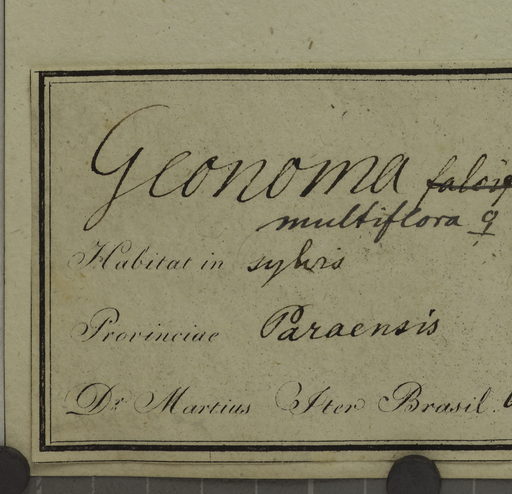 Geonoma
multiflora
Habitat in sylvis
Provinciae Paraensis
Dr Martius Iter Brasil.